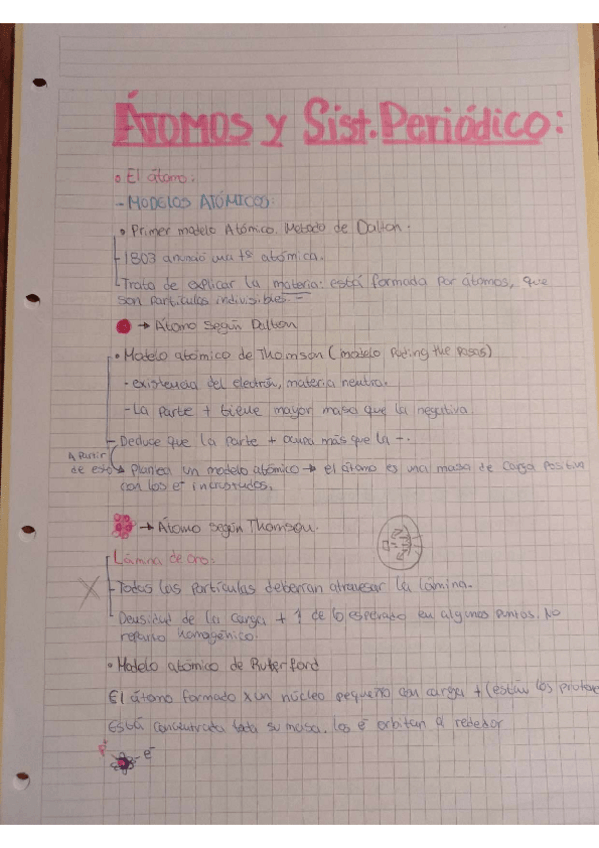 ÁTOMOS y Sist. Periódico:
• El átomo:
- MODELOS ATÓMICOS:
• Primer modelo Atómico. Metodo de Dalton.
- 1803 anunció una tª atómica.
- Trata de explicar la materia: está formada por átomos, que
son partículas indivisibles.
→ Átomo según Dalton
• Modelo atómico de Thomson (modelo Puding the pasas)
- existencia del electrón, materia neutra.
- La parte + tiene mayor masa que la negativa.
- Deduce que la parte + ocupa más que la -.
A Partir
de esto → Plantea un modelo atómico → el átomo es una masa de carga positiva
con los e⁻ incrustados.
→ Átomo según Thomson.
Lámina de oro:
- Todas las partículas deberran atravesar la lámina.
- Densidad de la carga + ↑ de lo esperado en algunos puntos. No
reparto homogénico.
• Modelo atómico de Ruterford
El átomo formado x un núcleo pequeño con carga + (están los protone
Está concentrada toda su masa. los e⁻ orbitan al rededor
e⁻